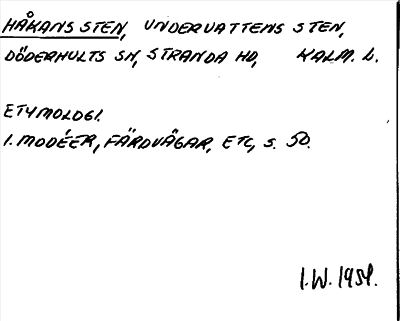 HÅKANS STEN, UNDERVATTENS STEN,
DÖDERHULTS SN, STRANDA HD, KALM. L.
ETYMOLOGI.
I. MODÉER, FÄRDVÄGAR, ETC, S. 50.
I.W. 1951.